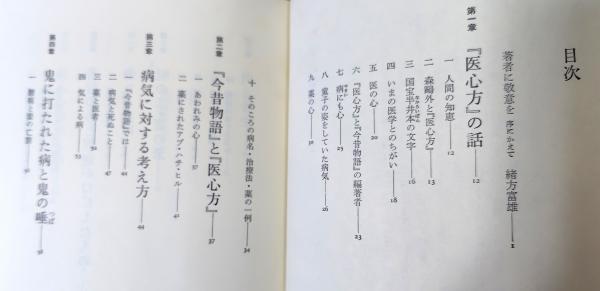 目次
著者に敬意を 序にかえて 緒方富雄 1
第一章 『医心方』の話 12
一 人間の知恵 12
二 森鷗外と『医心方』 13
三 国宝半井本の文字 16
四 いまの医学とのちがい 18
五 医の心 20
六 『医心方』と『今昔物語』の編著者 23
七 病にも心 25
八 童子の姿をしていた病気 26
九 薬の心 31
十 そのころの病名・治療法・薬の一例 34
第二章 『今昔物語』と『医心方』 37
一 あわれみの心 37
二 薬にされたアブ・ハチ・ヒル 41
第三章 病気に対する考え方 44
一 『今昔物語』では 44
二 病気と死ぬこと 47
三 薬と医者
四 気による病 53
第四章 鬼に打たれた病と鬼の唾